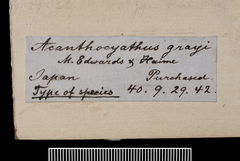 Acanthocyathus grayi
M. Edwards & Haime
Japan Purchased.
Type of species 40. 9. 29. 42.